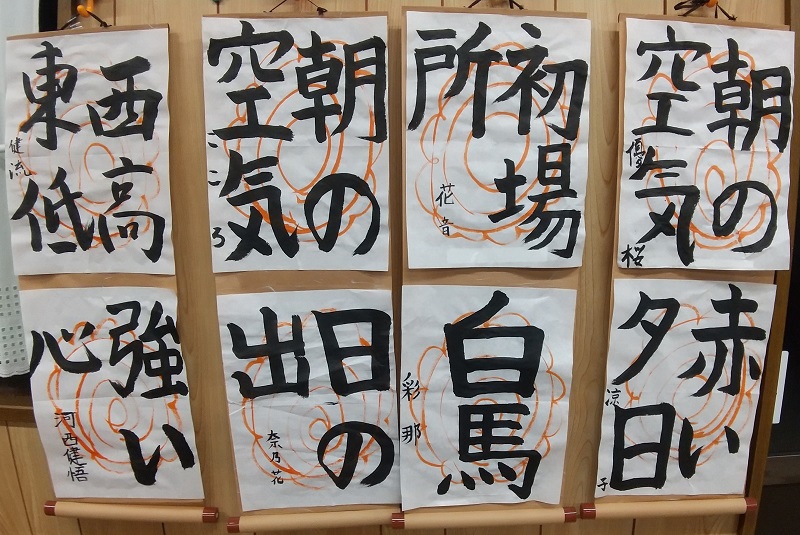 西高
東低
健流
朝の
空気
こころ
初場
所
花音
朝の
空気
強い
心
河西健悟
日の
出
奈乃花
白馬
彩那
赤い
夕日
涼子